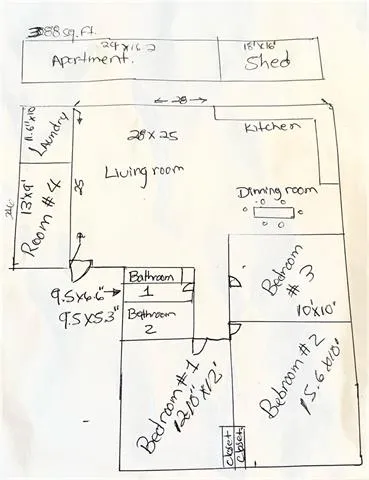 388 sq.ft.
24x16.2
Apartment.
18'x16'
Shed
28
11.6"x10
Laundry
28x25
Kitchen
Living room
25
Dinning room
13'x9'
Room #4
Bathroom
1
9.5x6.6"
9.5x5.3"
Bathroom
2
Bedroom
#3
10'x10'
Bedroom #1
12'10"x12'
Bedroom #2
closet
closet